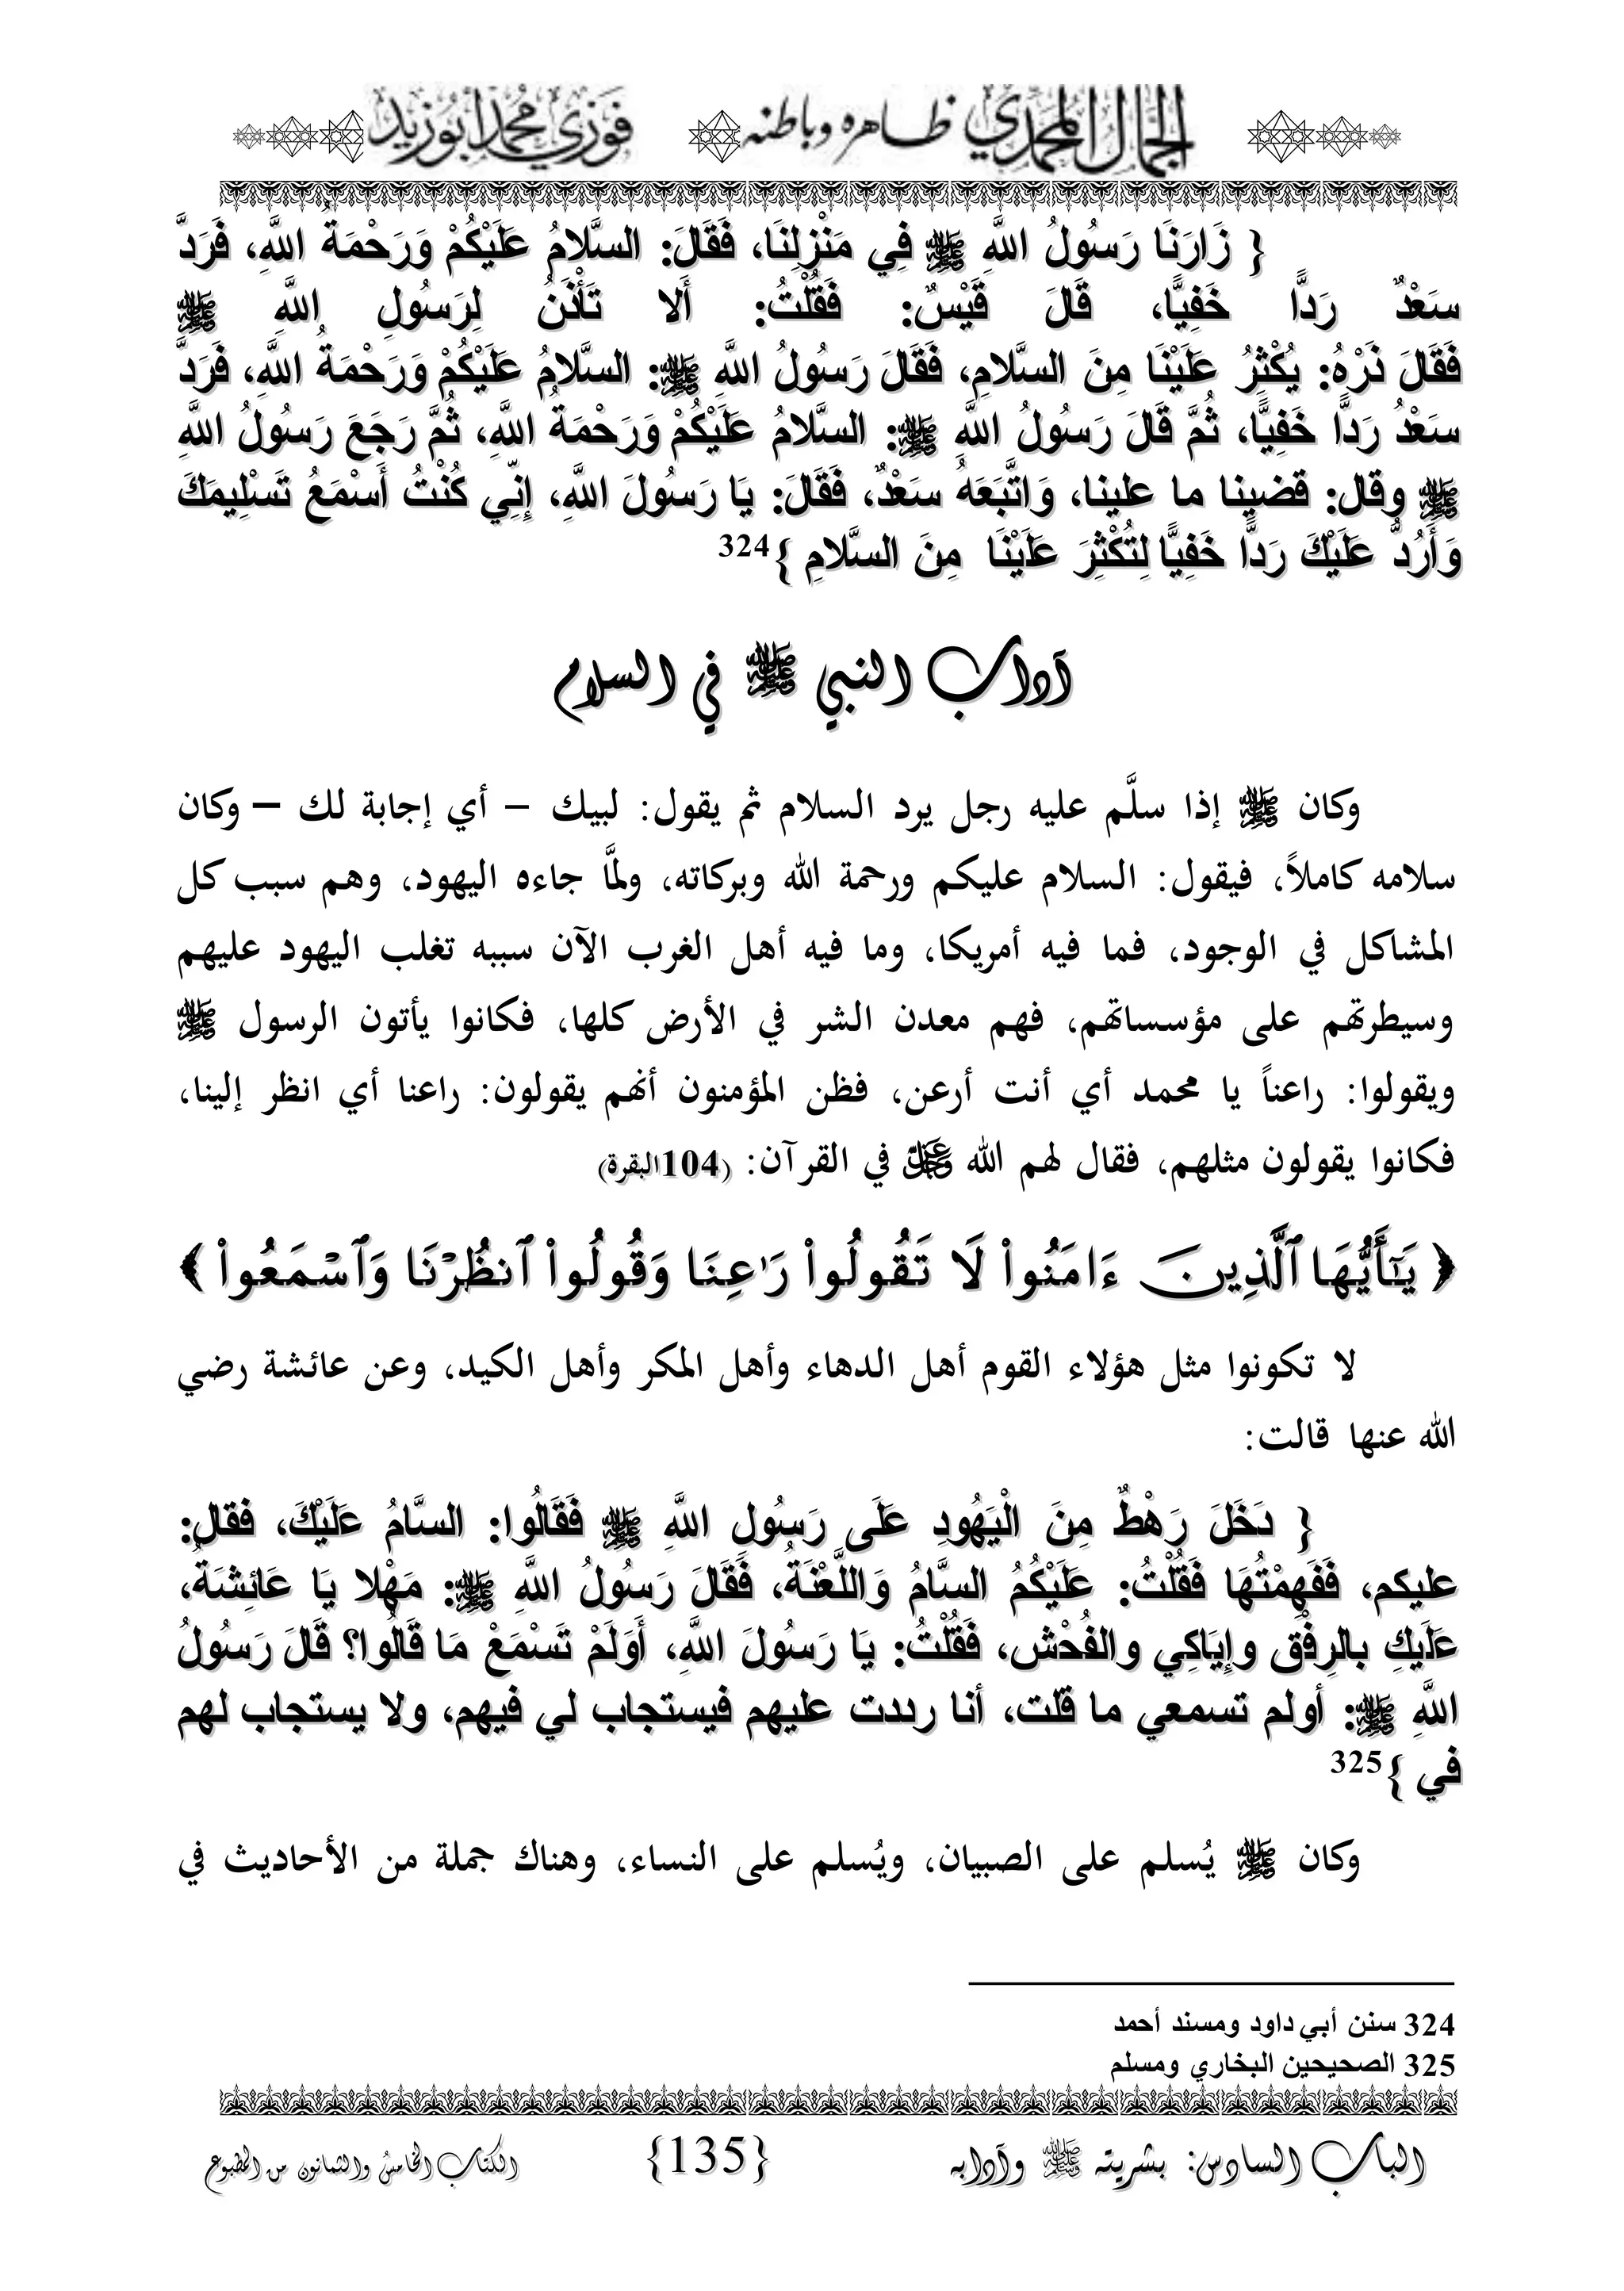 الجمال المحمدي ظاهره وباطنه فوزي محمد أبوزيد
{ زَارَنَا رَسُولُ اللَّهِ ﷺ فِي مَنْزِلِنَا، فَقَالَ: السَّلامُ عَلَيْكُمْ وَرَحْمَةُ اللَّهِ، فَرَدَّ
سَعْدٌ رَدًّا خَفِيًّا، قَالَ قَيْسٌ: فَقُلْتُ: أَلا تَأْذَنُ لِرَسُولِ اللَّهِ ﷺ
فَقَالَ ذَرْهُ: يُكْثِرُ عَلَيْنَا مِنَ السَّلامِ، فَقَالَ رَسُولُ اللَّهِ ﷺ: السَّلامُ عَلَيْكُمْ وَرَحْمَةُ اللَّهِ، فَرَدَّ
سَعْدُ رَدًّا خَفِيًّا، ثُمَّ قَالَ رَسُولُ اللَّهِ ﷺ: السَّلامُ عَلَيْكُمْ وَرَحْمَةُ اللَّهِ، ثُمَّ رَجَعَ رَسُولُ اللَّهِ
ﷺ وقال: قضينا ما علينا، وَاتَّبَعَهُ سَعْدٌ، فَقَالَ: يَا رَسُولَ اللَّهِ، إِنِّي كُنْتُ أَسْمَعُ تَسْلِيمَكَ
وَأَرُدُّ عَلَيْكَ رَدًّا خَفِيًّا لِتُكْثِرَ عَلَيْنَا مِنَ السَّلامِ }324
آداب النبي ﷺ في السلام
وكان ﷺ إذا سلَّم عليه رجل يرد السلام ثم يقول: لبيك – أي إجابة لك – وكان
سلامه كاملاً، فيقول: السلام عليكم ورحمة الله وبركاته، ولمَّا جاءه اليهود، وهم سبب كل
المشاكل في الوجود، فما فيه أمريكا، وما فيه أهل الغرب الآن سببه تغلب اليهود عليهم
وسيطرتهم على مؤسساتهم، فهم معدن الشر في الأرض كلها، فكانوا يأتون الرسول ﷺ
ويقولوا: راعناً يا محمد أي أنت أرعن، فظن المؤمنون أنهم يقولون: راعنا أي انظر إلينا،
فكانوا يقولون مثلهم، فقال لهم الله ﷻ في القرآن: (104البقرة)
﴿ يَـٰٓأَيُّهَا ٱلَّذِينَ ءَامَنُوا۟ لَا تَقُولُوا۟ رَٰعِنَا وَقُولُوا۟ ٱنظُرْنَا وَٱسْمَعُوا۟ ﴾
لا تكونوا مثل هؤلاء القوم أهل الدهاء وأهل المكر وأهل الكيد، وعن عائشة رضي
الله عنها قالت:
{ دَخَلَ رَهْطٌ مِنَ الْيَهُودِ عَلَى رَسُولِ اللَّهِ ﷺ فَقَالُوا: السَّامُ عَلَيْكَ، فقال:
عليكم، فَفَهِمْتُهَا فَقُلْتُ: عَلَيْكُمُ السَّامُ وَاللَّعْنَةُ، فَقَالَ رَسُولُ اللَّهِ ﷺ: مَهْلا يَا عَائِشَةُ،
عَلَيكِ بالرِفْق وإِيَاكِي والفُحْش، فَقُلْتُ: يَا رَسُولَ اللَّهِ، أَوَلَمْ تَسْمَعْ مَا قَالُوا؟ قَالَ رَسُولُ
اللَّهِ ﷺ: أولم تسمعي ما قلت، أنا رددت عليهم فيستجاب لي فيهم، ولا يستجاب لهم
في }325
وكان ﷺ يُسلم على الصبيان، ويُسلم على النساء، وهناك جملة من الأحاديث في
324 سنن أبي داود ومسند أحمد
325 الصحيحين البخاري ومسلم
الباب السادس: بشريته ﷺ وآدابه {135} الكتاب الخامس والثمانون من المطبوع